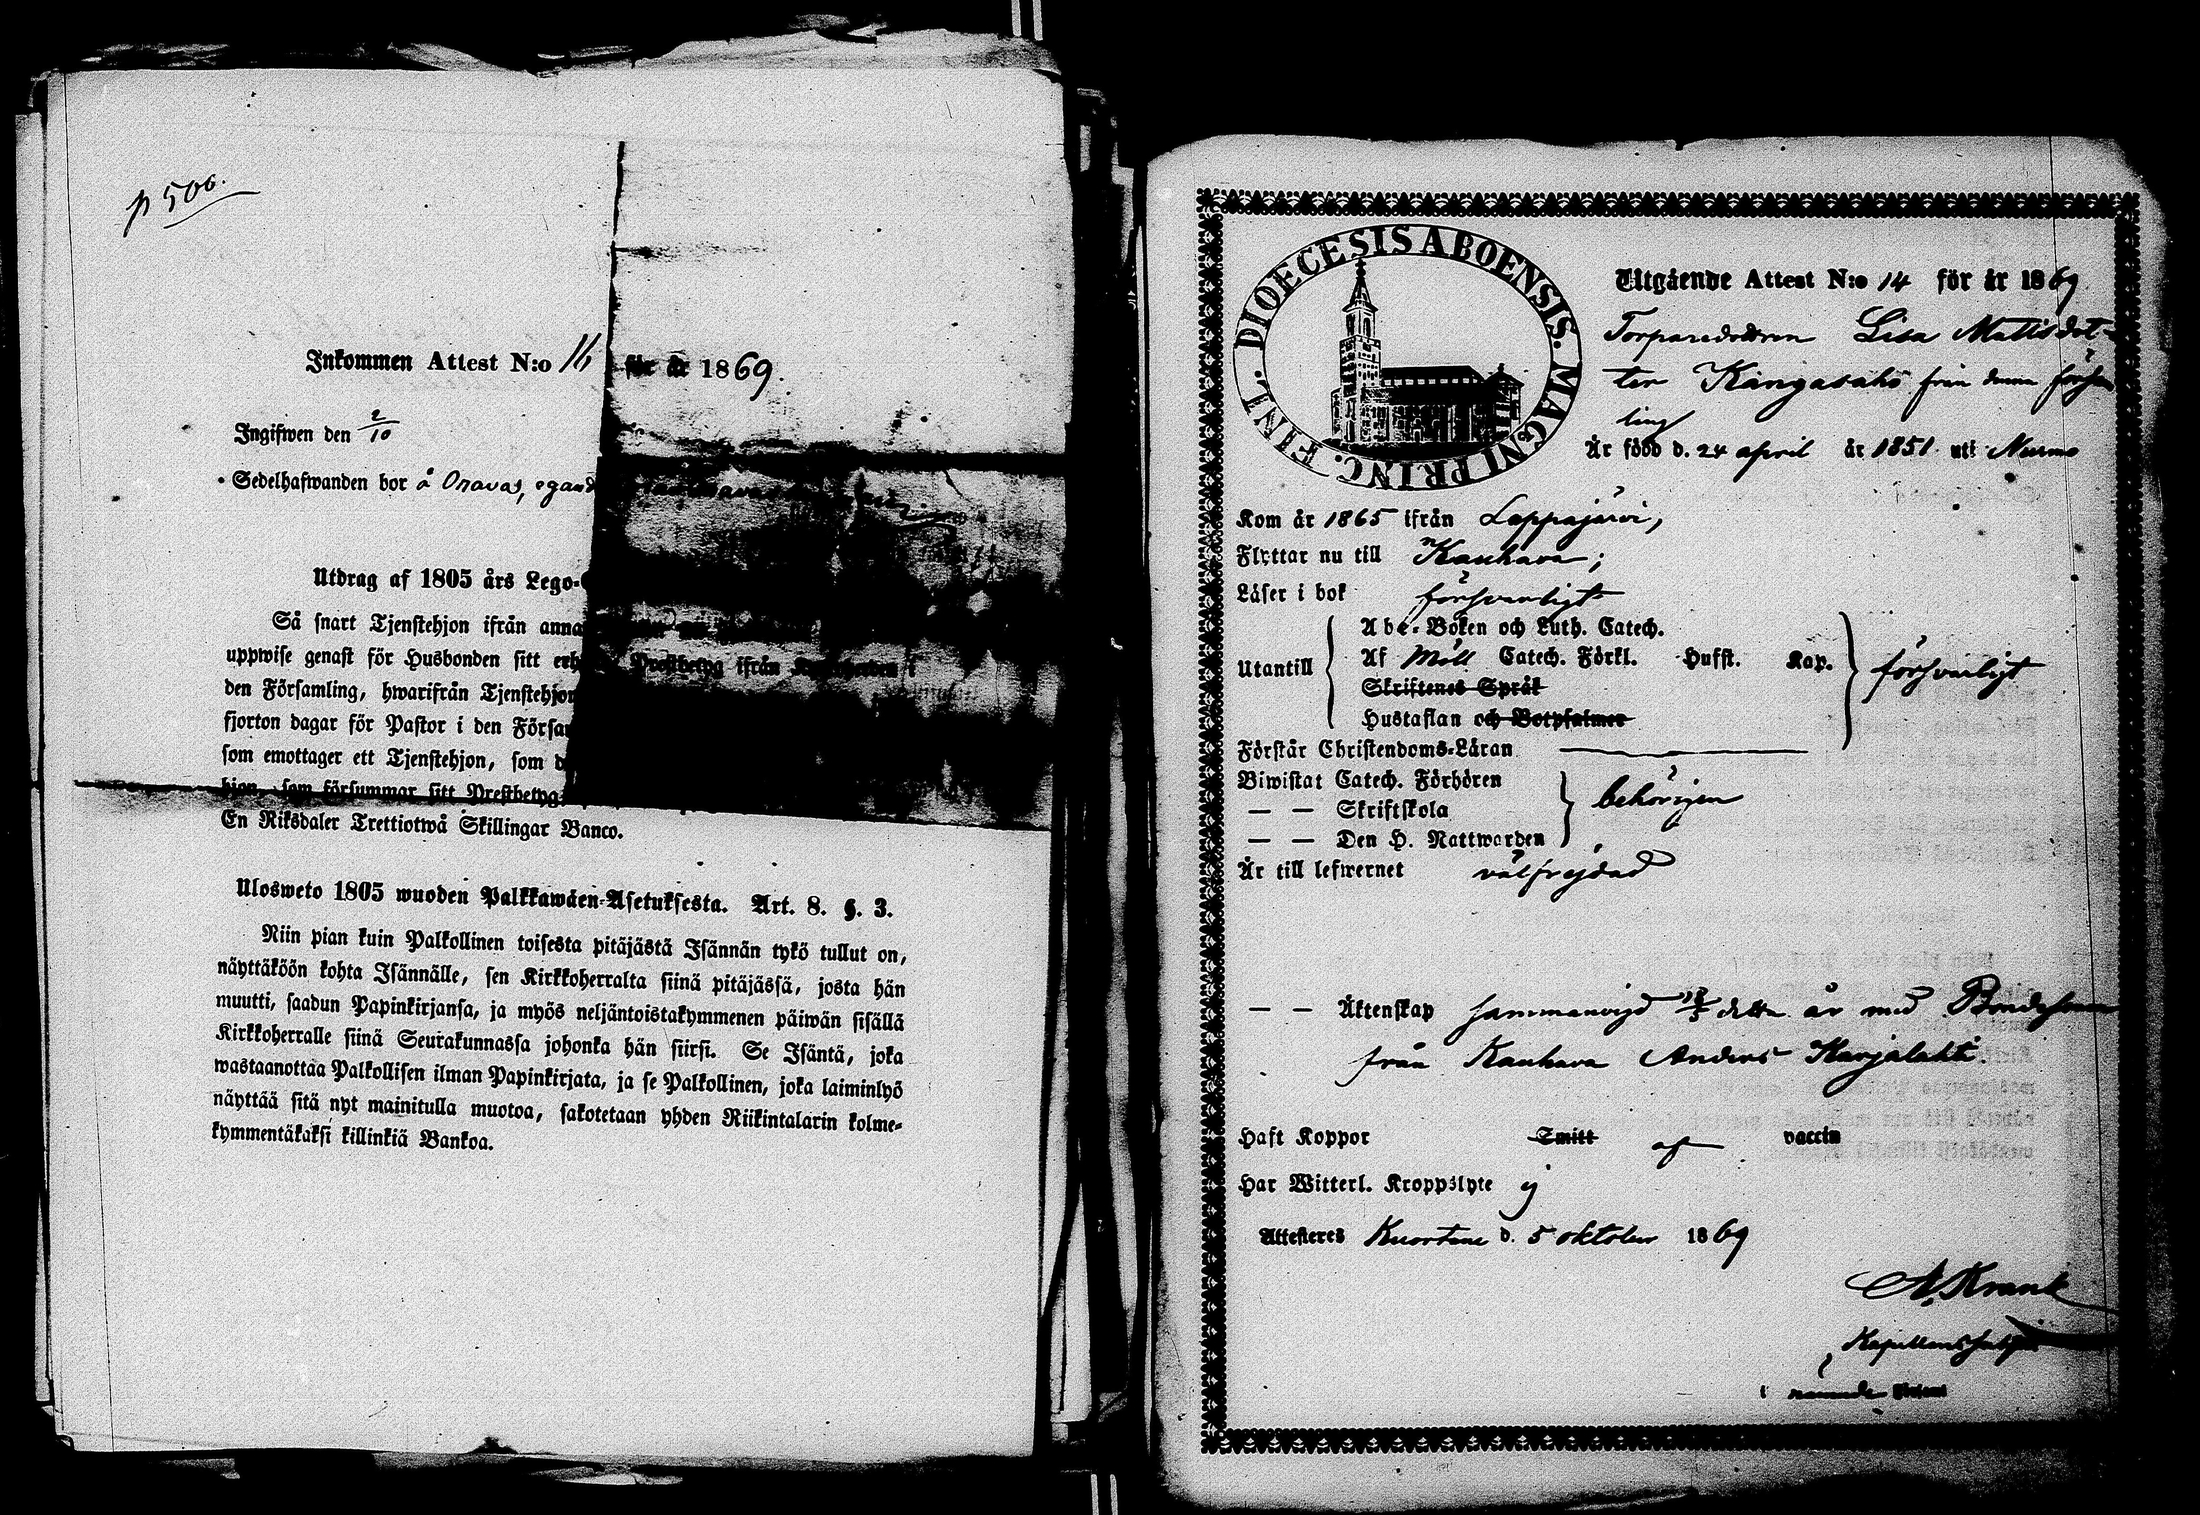 p 506.
Inkommen Attest N:o 16 för år 1869.
Ingifwen den 2/10
Sedelhafwanden bor å Oravas, egand
Utdrag af 1805 års Lego-
Så snart Tjenstehjon ifrån anna
uppwise genast för Husbonden sitt erh Prestbetyg ifrån Kyrkoherden i
den Församling, hwarifrån Tjenstehjon
fjorton dagar för Pastor i den Försam
som emottager ett Tjenstehjon, som d
hjon, som försummar sitt Prestbetyg
En Riksdaler Trettiotwå Skillingar Banco.
Ulosweto 1805 wuoden Palkkawäen-Asetuksesta. Art. 8. §. 3.
Niin pian kuin Palkollinen toisesta pitäjästä Isännän tykö tullut on,
näyttäköön kohta Isännälle, sen Kirkkoherralta siinä pitäjässä, josta hän
muutti, saadun Papinkirjansa, ja myös neljäntoistakymmenen päiwän sisällä
Kirkkoherralle siinä Seurakunnassa johonka hän siirsi. Se Isäntä, joka
wastaanottaa Palkollisen ilman Papinkirjata, ja se Palkollinen, joka laiminlyö
näyttää sitä nyt mainitulla muotoa, sakotetaan yhden Riikintalarin kolme-
kymmentäkaksi killinkiä Bankoa.
DIOECESIS ABOENSIS. MAGNI PRINC. FINL.
Utgående Attest N:o 14 för år 1869
Torparedottren Lisa Mattsdot-
ter Kangasaho från denna försam
ling
Är född d. 24 april år 1851 uti Nurmo
Kom år 1865 ifrån Lappajärvi,
Flyttar nu till Kauhava;
Läser i bok försvarligt
Abc-Boken och Luth. Catech.
Utantill Af Möll Catech. Förkl. Husst. Kap. försvarligt
Skriftenes Språk
Hustaflan och Botpsalmer
Förstår Christendoms-Läran
Biwistat Catech. Förhören
— — Skriftskola behörigen
— — Den H. Nattwarden
Är till lefwernet välfrejdad
— — Äktenskap sammanvigd detta år med Bondesonen
från Kauhava Anders Karjalahti.
Haft Koppor Smitt af vaccin
Har Witterl. Kroppslyte ej
Attesteres Kuortane d. 5 oktober 1869
A. Krank
Kapellansadj.
i